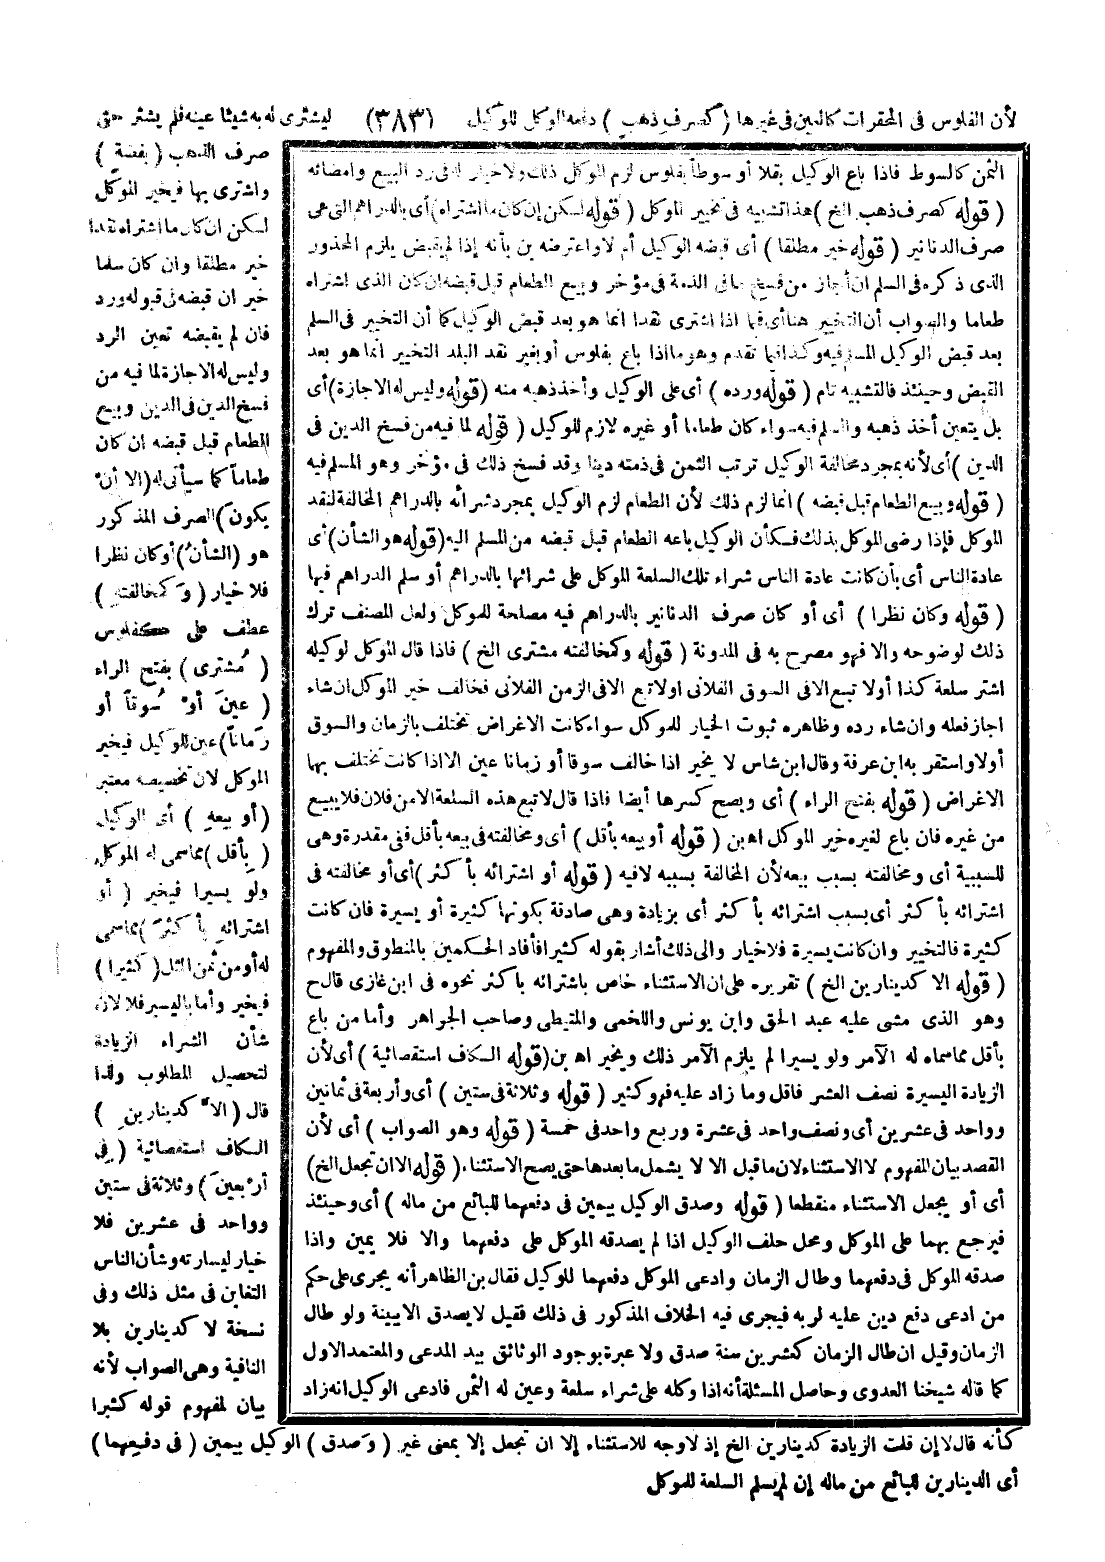 لأن الفلوس فى المحقرات كالعين فى غيرها (كصرف ذهب) دفعه الموكل للوكيل (٣٨٣) ليشترى له به شيئا عينه فلم يشتر حتى
صرف الذهب (بفضة)
واشترى بها فيخير الموكل
لكن ان كان ما اشتراه نقدا
خير مطلقا وان كان سلما
خير ان قبضه فى قبوله ورد
فان لم يقبضه تعين الرد
وليس له الاجازة لما فيه من
فسخ الدين فى الدين وبيع
الطعام قبل قبضه ان كان
طعاماً كما سيأتى له (الا أن
يكون) الصرف المذكور
هو (الشأن) أو كان نظرا
فلا خيار (وكمخالفته)
عطف على كفلوس
(مُشترى) بفتح الراء
(عين أو سُوقاً أو
زماناً) عين للوكيل فيخير
الموكل لان تخصيصه معتبر
(أو بيعه) أى الوكيل
(بأقل) مما سمى له الموكل
ولو يسيرا فيخير (أو
اشترائه بأكثر) مما سمى
له أو من ثمن المثل (كثيرا)
فيخير وأما باليسير فلا لان
شأن الشراء الزيادة
لتحصيل المطلوب ولذا
قال (الا كدينارين)
الكاف استقصائية (فى
أربعين) وثلاثة فى ستين
وواحد فى عشرين فلا
خيار ليسارته وشأن الناس
التغابن فى مثل ذلك وفى
نسخة لا كدينارين بلا
النافية وهى الصواب لأنه
بيان لمفهوم قوله كثيرا
كأنه قال لا إن قلت الزيادة كدينارين الخ إذ لا وجه للاستثناء إلا ان تجعل إلا بمعنى غير (وصدق) الوكيل بيمين (فى دفعهما)
أى الدينارين للبائع من ماله إن لم يسلم السلعة للموكل
الثمن كالسوط فاذا باع الوكيل بقلا أو سوطا بفلوس لزم الموكل ذلك ولا خيار له فى رد البيع وامضائه
(قوله كصرف ذهب الخ) هذا تشبيه فى تخيير الموكل (قوله لكن إن كان ما اشتراه) أى بالدراهم التى هى
صرف الدنانير (قوله خير مطلقا) أى قبضه الوكيل أم لا واعترضه بن بأنه إذا لم يقبض يلزم المحذور
الذى ذكره فى السلم ان أجاز من فسخ مافى الذمة فى مؤخر وبيع الطعام قبل قبضه ان كان الذى اشتراه
طعاما والصواب أن التخيير هنا أى فيما اذا اشترى نقدا انما هو بعد قبض الوكيل كما أن التخيير فى السلم
بعد قبض الوكيل المسلم فيه وكذا فيما تقدم وهو ما اذا باع بفلوس أو بغير نقد البلد التخيير انما هو بعد
القبض وحينئذ فالتشبيه تام (قوله ورده) أى على الوكيل وأخذ ذهبه منه (قوله وليس له الاجازة) أى
بل يتعين أخذ ذهبه والمسلم فيه سواء كان طعاما أو غيره لازم للوكيل (قوله لما فيه من فسخ الدين فى
الدين) أى لأنه بمجرد مخالفة الوكيل ترتب الثمن فى ذمته دينا وقد فسخ ذلك فى مؤخر وهو المسلم فيه
(قوله وبيع الطعام قبل قبضه) انما لزم ذلك لأن الطعام لزم الوكيل بمجرد شرائه بالدراهم المخالفة لنقد
الموكل فإذا رضى الموكل بذلك فكأن الوكيل باعه الطعام قبل قبضه من المسلم اليه (قوله هو الشأن) أى
عادة الناس أى بأن كانت عادة الناس شراء تلك السلعة الموكل على شرائها بالدراهم أو سلم الدراهم فيها
(قوله وكان نظرا) أى أو كان صرف الدنانير بالدراهم فيه مصلحة للموكل ولعل المصنف ترك
ذلك لوضوحه والا فهو مصرح به فى المدونة (قوله وكمخالفته مشترى الخ) فاذا قال الموكل لوكيله
اشتر سلعة كذا أو لا تبع الا فى السوق الفلانى اولا تبع الا فى الزمن الفلانى فخالف خير الموكل ان شاء
اجاز فعله وان شاء رده وظاهره ثبوت الخيار للموكل سواء كانت الاغراض تختلف بالزمان والسوق
أولا واستقر به ابن عرفة وقال ابن شاس لا يخير اذا خالف سوقا أو زمانا عين الا اذا كانت تختلف بها
الاغراض (قوله بفتح الراء) أى ويصح كسرها أيضا فاذا قال لا تبع هذه السلعة الا من فلان فلا يبيع
من غيره فان باع لغيره خير الموكل اه بن (قوله أو بيعه بأقل) أى ومخالفته فى بيعه بأقل ففى مقدرة وهى
للسببية أى ومخالفته بسبب بيعه لأن المخالفة بسببه لا فيه (قوله أو اشترائه بأكثر) أى أو مخالفته فى
اشترائه بأكثر أى بسبب اشترائه بأكثر أى بزيادة وهى صادقة بكونها كثيرة أو يسيرة فان كانت
كثيرة فالتخيير وان كانت يسيرة فلا خيار والى ذلك أشار بقوله كثيرا فأفاد الحكمين بالمنطوق والمفهوم
(قوله الا كدينارين الخ) تقريره على ان الاستثناء خاص باشترائه بأكثر نحوه فى ابن غازى قال ح
وهو الذى مشى عليه عبد الحق وابن يونس واللخمى والمتيطى وصاحب الجواهر وأما من باع
بأقل مما سماه له الآمر ولو يسيرا لم يلزم الآمر ذلك ويخير اه بن (قوله الكاف استقصائية) أى لأن
الزيادة اليسيرة نصف العشر فاقل وما زاد عليه فهو كثير (قوله وثلاثة فى ستين) أى وأربعة فى ثمانين
وواحد فى عشرين أى ونصف واحد فى عشرة وربع واحد فى خمسة (قوله وهو الصواب) أى لأن
القصد بيان المفهوم لا الاستثناء لان ما قبل الا لا يشمل ما بعدها حتى يصح الاستثناء (قوله الا ان تجعل الخ)
أى أو يجعل الاستثناء منقطعا (قوله وصدق الوكيل بيمين فى دفعهما للبائع من ماله) أى وحينئذ
فيرجع بهما على الموكل ومحل حلف الوكيل اذا لم يصدقه الموكل على دفعهما والا فلا يمين واذا
صدقه الموكل فى دفعهما وطال الزمان وادعى الموكل دفعهما للوكيل فقال بن الظاهر أنه يجرى على حكم
من ادعى دفع دين عليه لربه فيجرى فيه الخلاف المذكور فى ذلك فقيل لا يصدق الا ببينة ولو طال
الزمان وقيل ان طال الزمان كعشرين سنة صدق ولا عبرة بوجود الوثائق بيد المدعى والمعتمد الاول
كما قاله شيخنا العدوى وحاصل المسئلة أنه اذا وكله على شراء سلعة وعين له الثمن فادعى الوكيل انه زاد